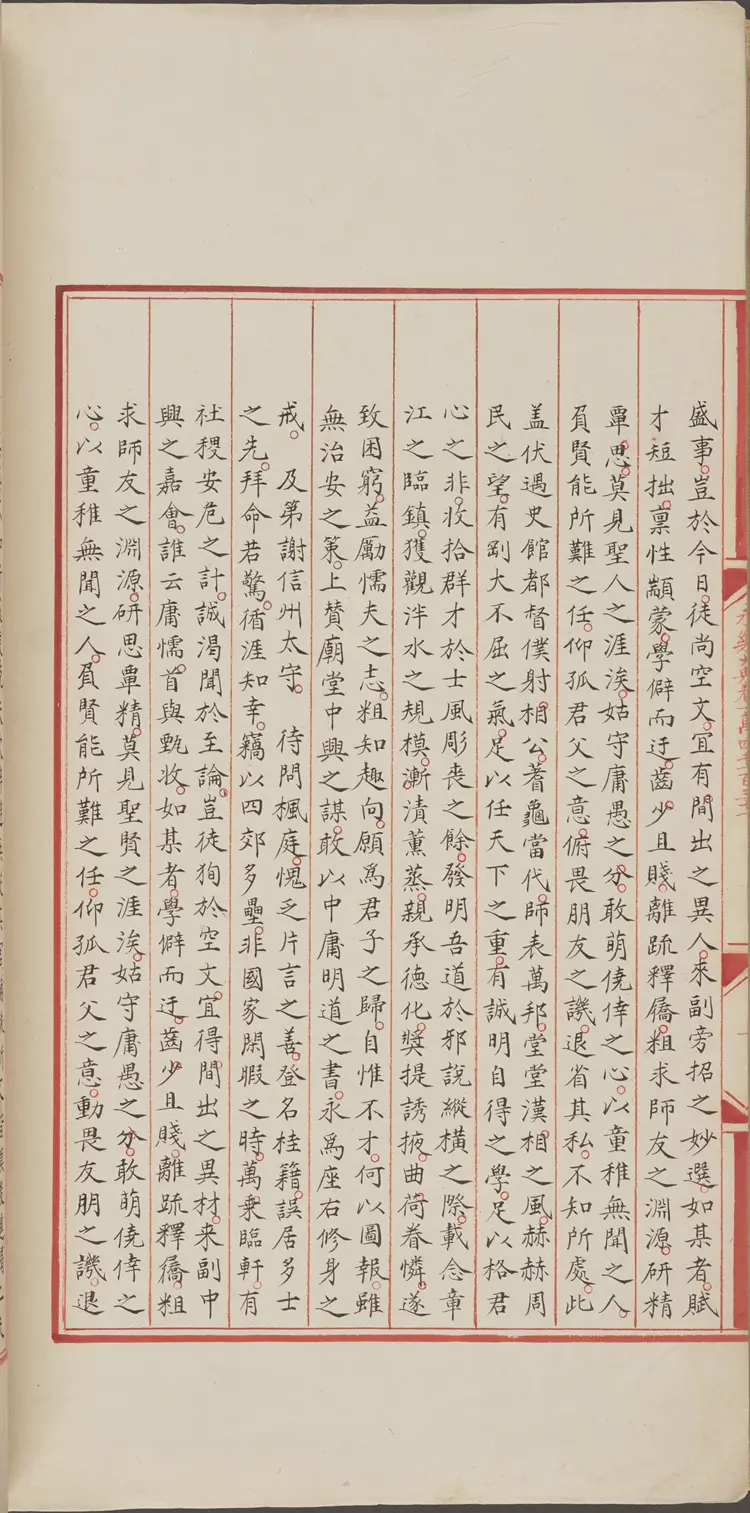 盛事。豈於今日。徒尚空文。宜有間出之異人。來副旁招之妙選。如某者。賦
才短拙。禀性顓蒙。學僻而迂。齒少且賤。離疏釋屩。粗求師友之淵源。研精
覃思。莫見聖人之涯涘。姑守庸愚之分。敢萌僥倖之心。以童稚無聞之人。
負賢能所難之任。仰孤君父之意。俯畏朋友之譏。退省其私。不知所處。此
盖伏遇史館都督僕射相公。蓍龜當代。師表萬邦。堂堂漢相之風。赫赫周
民之望。有剛大不屈之氣。足以任天下之重。有誠明自得之學。足以格君
心之非。收拾群才於士風彫喪之餘。發明吾道於邪說縱橫之際。載念章
江之臨鎮。獲觀泮水之規模。漸漬薰蒸。親承德化。獎提誘掖。曲荷眷憐。遂
致困窮。益勵懦夫之志。粗知趣向。願為君子之歸。自惟不才。何以圖報。雖
無治安之策。上賛廟堂中興之謀。敢以中庸明道之書。永為座右修身之
戒。 及第謝信州太守。 待問楓庭。愧乏片言之善。登名桂籍。誤居多士
之先。拜命若驚。循涯知幸。竊以四郊多壘。非國家閑暇之時。萬乘臨軒。有
社稷安危之計。誠渴聞於至論。豈徒狥於空文。宜得間出之異材。来副中
興之嘉會。誰云庸懦。首與甄收。如某者。學僻而迂。齒少且賤。離疏釋屩。粗
求師友之淵源。研思覃精。莫見聖賢之涯涘。姑守庸愚之分。敢萌僥倖之
心。以童稚無聞之人。負賢能所難之任。仰孤君父之意。動畏友朋之譏。退